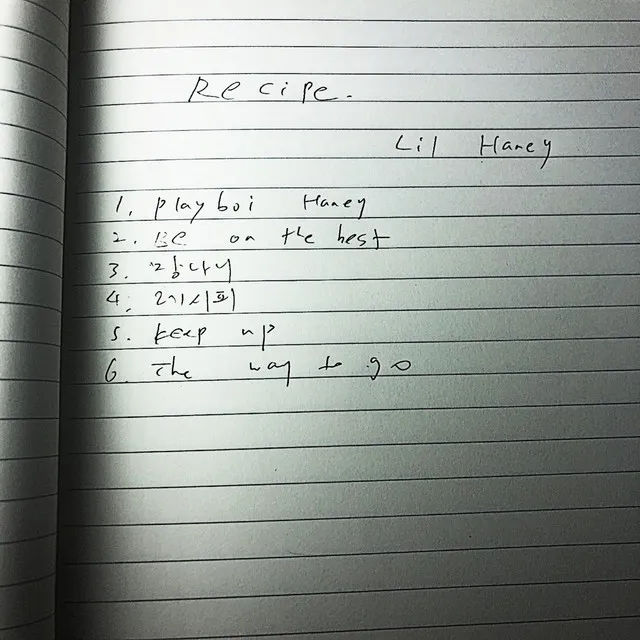 Recipe.
Lil Haney
1. Playboi Haney
2. Be on the best
3. 강다니
4. 레시피
5. keep up
6. The way to go